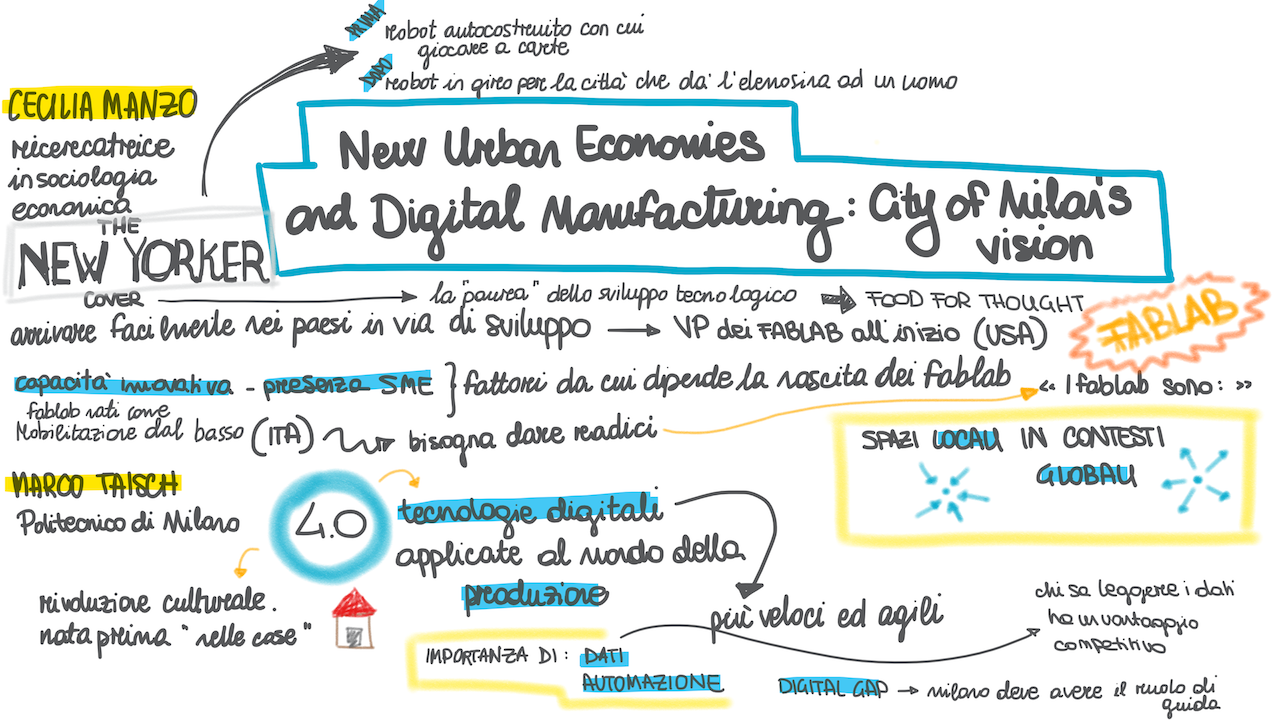 PRIMA
robot autocostruito con cui
giocare a carte
DOPO
robot in giro per la città che dà l'elemosina ad un uomo
CECILIA MANZO
ricercatrice
in sociologia
economica
New Urban Economies
and Digital Manufacturing: City of Milan's
vision
THE
NEW YORKER
COVER → la "paura" dello sviluppo tecnologico → FOOD FOR THOUGHT
arrivare facilmente nei paesi in via di sviluppo → VP dei FABLAB all'inizio (USA)
FABLAB
capacità innovativa - presenza SME } fattori da cui dipende la nascita dei fablab
« I fablab sono: »
fablab nati come
Mobilitazione dal basso (ITA) → bisogna dare radici
SPAZI LOCALI IN CONTESTI
GLOBALI
MARCO TAISCH
Politecnico di Milano
4.0
tecnologie digitali
applicate al mondo della
produzione
rivoluzione culturale.
nata prima "nelle case"
più veloci ed agili
chi sa leggere i dati
ha un vantaggio
competitivo
IMPORTANZA DI: DATI
AUTOMAZIONE
DIGITAL GAP → milano deve avere il ruolo di
guida